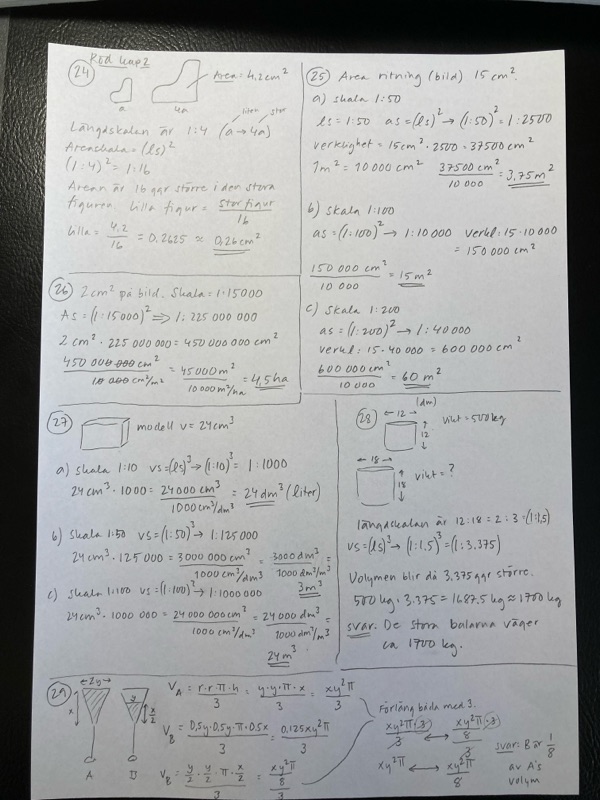 Röd kap 2
24
Area = 4,2 cm²
a 4a
liten stor
Längdskalan är 1:4 (a → 4a)
Areaskala = (ls)²
(1:4)² = 1:16
Arean är 16 ggr större i den stora
figuren lilla figur = stor figur / 16
lilla = 4,2 / 16 = 0,2625 ≈ 0,26 cm²
25 Area ritning (bild) 15 cm².
a) skala 1:50
ls = 1:50 as = (ls)² → (1:50)² = 1:2500
verklighet = 15 cm² · 2500 = 37500 cm²
1m² = 10 000 cm² 37500 cm² / 10 000 = 3,75 m²
b) skala 1:100
as = (1:100)² → 1:10 000 verkl: 15 · 10 000
= 150 000 cm²
150 000 cm² / 10 000 = 15 m²
c) skala 1:200
as = (1:200)² → 1:40 000
verkl: 15 · 40 000 = 600 000 cm²
600 000 cm² / 10 000 = 60 m²
26 2 cm² på bild. Skala = 1:15000
As = (1:15000)² ⇒ 1:225 000 000
2 cm² · 225 000 000 = 450 000 000 cm²
450 000 000 cm² / 10 000 cm²/m² = 45000 m² / 10 000 m²/ha = 4,5 ha
27 modell v = 24 cm³
a) skala 1:10 vs = (ls)³ → (1:10)³ = 1:1000
24 cm³ · 1000 = 24 000 cm³ / 1000 cm³/dm³ = 24 dm³ (liter)
b) skala 1:50 vs = (1:50)³ → 1:125 000
24 cm³ · 125 000 = 3000 000 cm³ / 1000 cm³/dm³ = 3000 dm³ / 1000 dm³/m³ =
3 m³
c) skala 1:100 vs = (1:100)³ → 1:1000 000
24 cm³ · 1000 000 = 24 000 000 cm³ / 1000 cm³/dm³ = 24 000 dm³ / 1000 dm³/m³ =
24 m³
28 (dm)
12 12 vikt = 500 kg
18 18 vikt = ?
längdskalan är 12:18 = 2:3 = (1:1,5)
vs = (ls)³ → (1:1,5)³ = (1:3.375)
Volymen blir då 3.375 ggr större.
500 kg · 3.375 = 1687,5 kg ≈ 1700 kg
svar: De stora balarna väger
ca 1700 kg.
29
2y x A
y x/2 B
V_A = r·r·π·h / 3 = y·y·π·x / 3 = xy²π / 3
V_B = 0,5y·0,5y·π·0,5x / 3 = 0,125xy²π / 3
V_B = y/2 · y/2 · π · x/2 / 3 = xy²π/8 / 3
Förläng båda med 3.
xy²π · 3 / 3 ↔ xy²π/8 · 3 / 3
xy²π ↔ xy²π / 8
svar: B är 1/8
av A's
volym